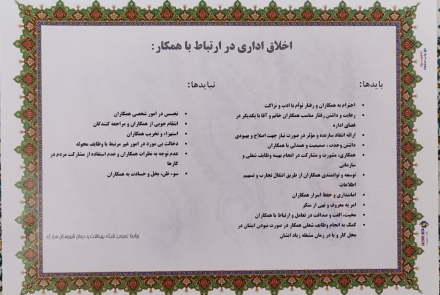 اخلاق اداری در ارتباط با همکار:
بایدها:
احترام به همکاران و رفتار توأم با ادب و نزاکت
رعایت و داشتن رفتار مناسب همکاران خانم و آقا با یکدیگر در
فضای اداره
ارائه انتقاد سازنده و مؤثر در صورت نیاز جهت اصلاح و بهبودی
داشتن وحدت، صمیمیت و همدلی با همکاران
همکاری، مشورت و مشارکت در انجام بهینه وظایف شغلی و
سازمانی
توسعه و توانمندی همکاران از طریق انتقال تجارب و تسهیم
اطلاعات
امانتداری و حفظ اسرار همکاران
امر به معروف و نهی از منکر
محبت، الفت و صداقت در تعامل و ارتباط با همکاران
کمک به انجام وظایف شغلی همکار در صورت نبودن ایشان در
محل کار و یا در زمان مشغله زیاد ایشان
نبایدها:
تجسس در امور شخصی همکاران
انتقام جویی از همکاران و مراجعه کنندگان
استهزاء و تخریب همکاران
دخالت بی مورد در امور غیر مرتبط با وظایف محوله
عدم توجه به نظرات همکاران و عدم استفاده از مشارکت مردم در
کارها
سوء ظن، بخل و حسادت به همکاران
روابط عمومی شبکه بهداشت و درمان شهرستان